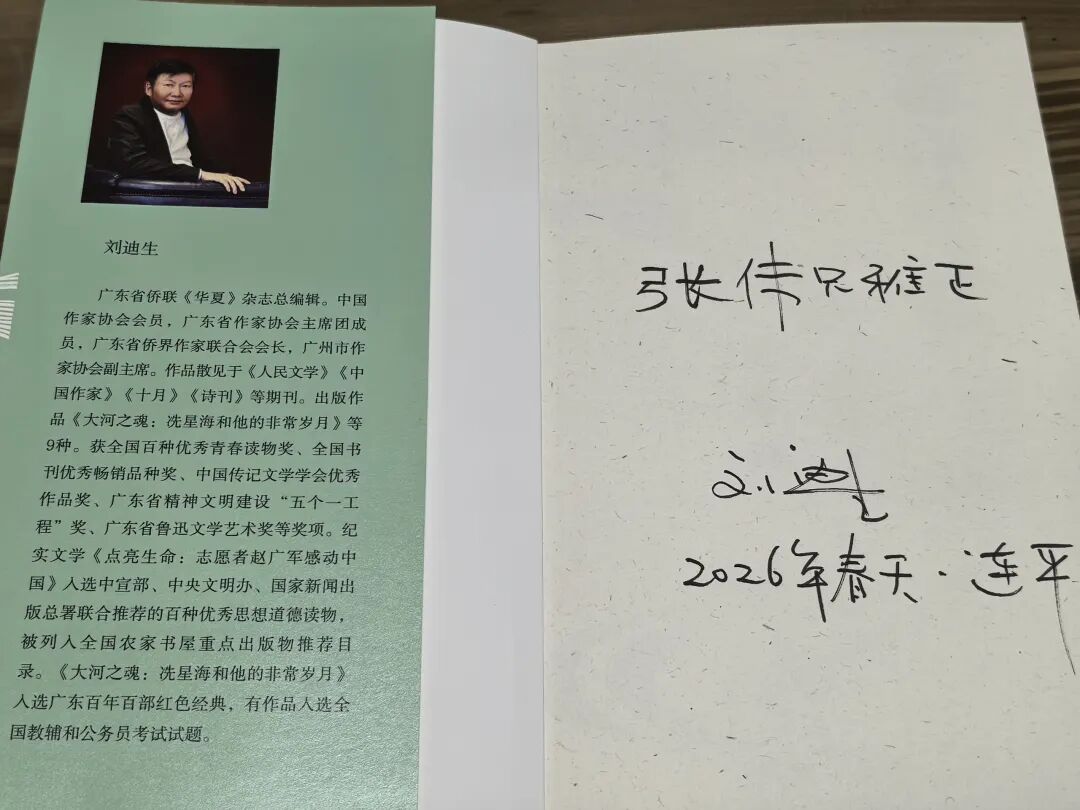 刘迪生
广东省侨联《华夏》杂志总编辑。中国
作家协会会员，广东省作家协会主席团成
员，广东省侨界作家联合会会长，广州市作
家协会副主席。作品散见于《人民文学》《中
国作家》《十月》《诗刊》等期刊。出版作
品《大河之魂：冼星海和他的非常岁月》等
9种。获全国百种优秀青春读物奖、全国书
刊优秀畅销品种奖、中国传记文学学会优秀
作品奖、广东省精神文明建设“五个一工
程”奖、广东省鲁迅文学艺术奖等奖项。纪
实文学《点亮生命：志愿者赵广军感动中
国》入选中宣部、中央文明办、国家新闻出
版总署联合推荐的百种优秀思想道德读物，
被列入全国农家书屋重点出版物推荐目
录。《大河之魂：冼星海和他的非常岁月》
入选广东百年百部红色经典，有作品入选全
国教辅和公务员考试试题。
张伟兄雅正
刘迪生
2026年春天·连平